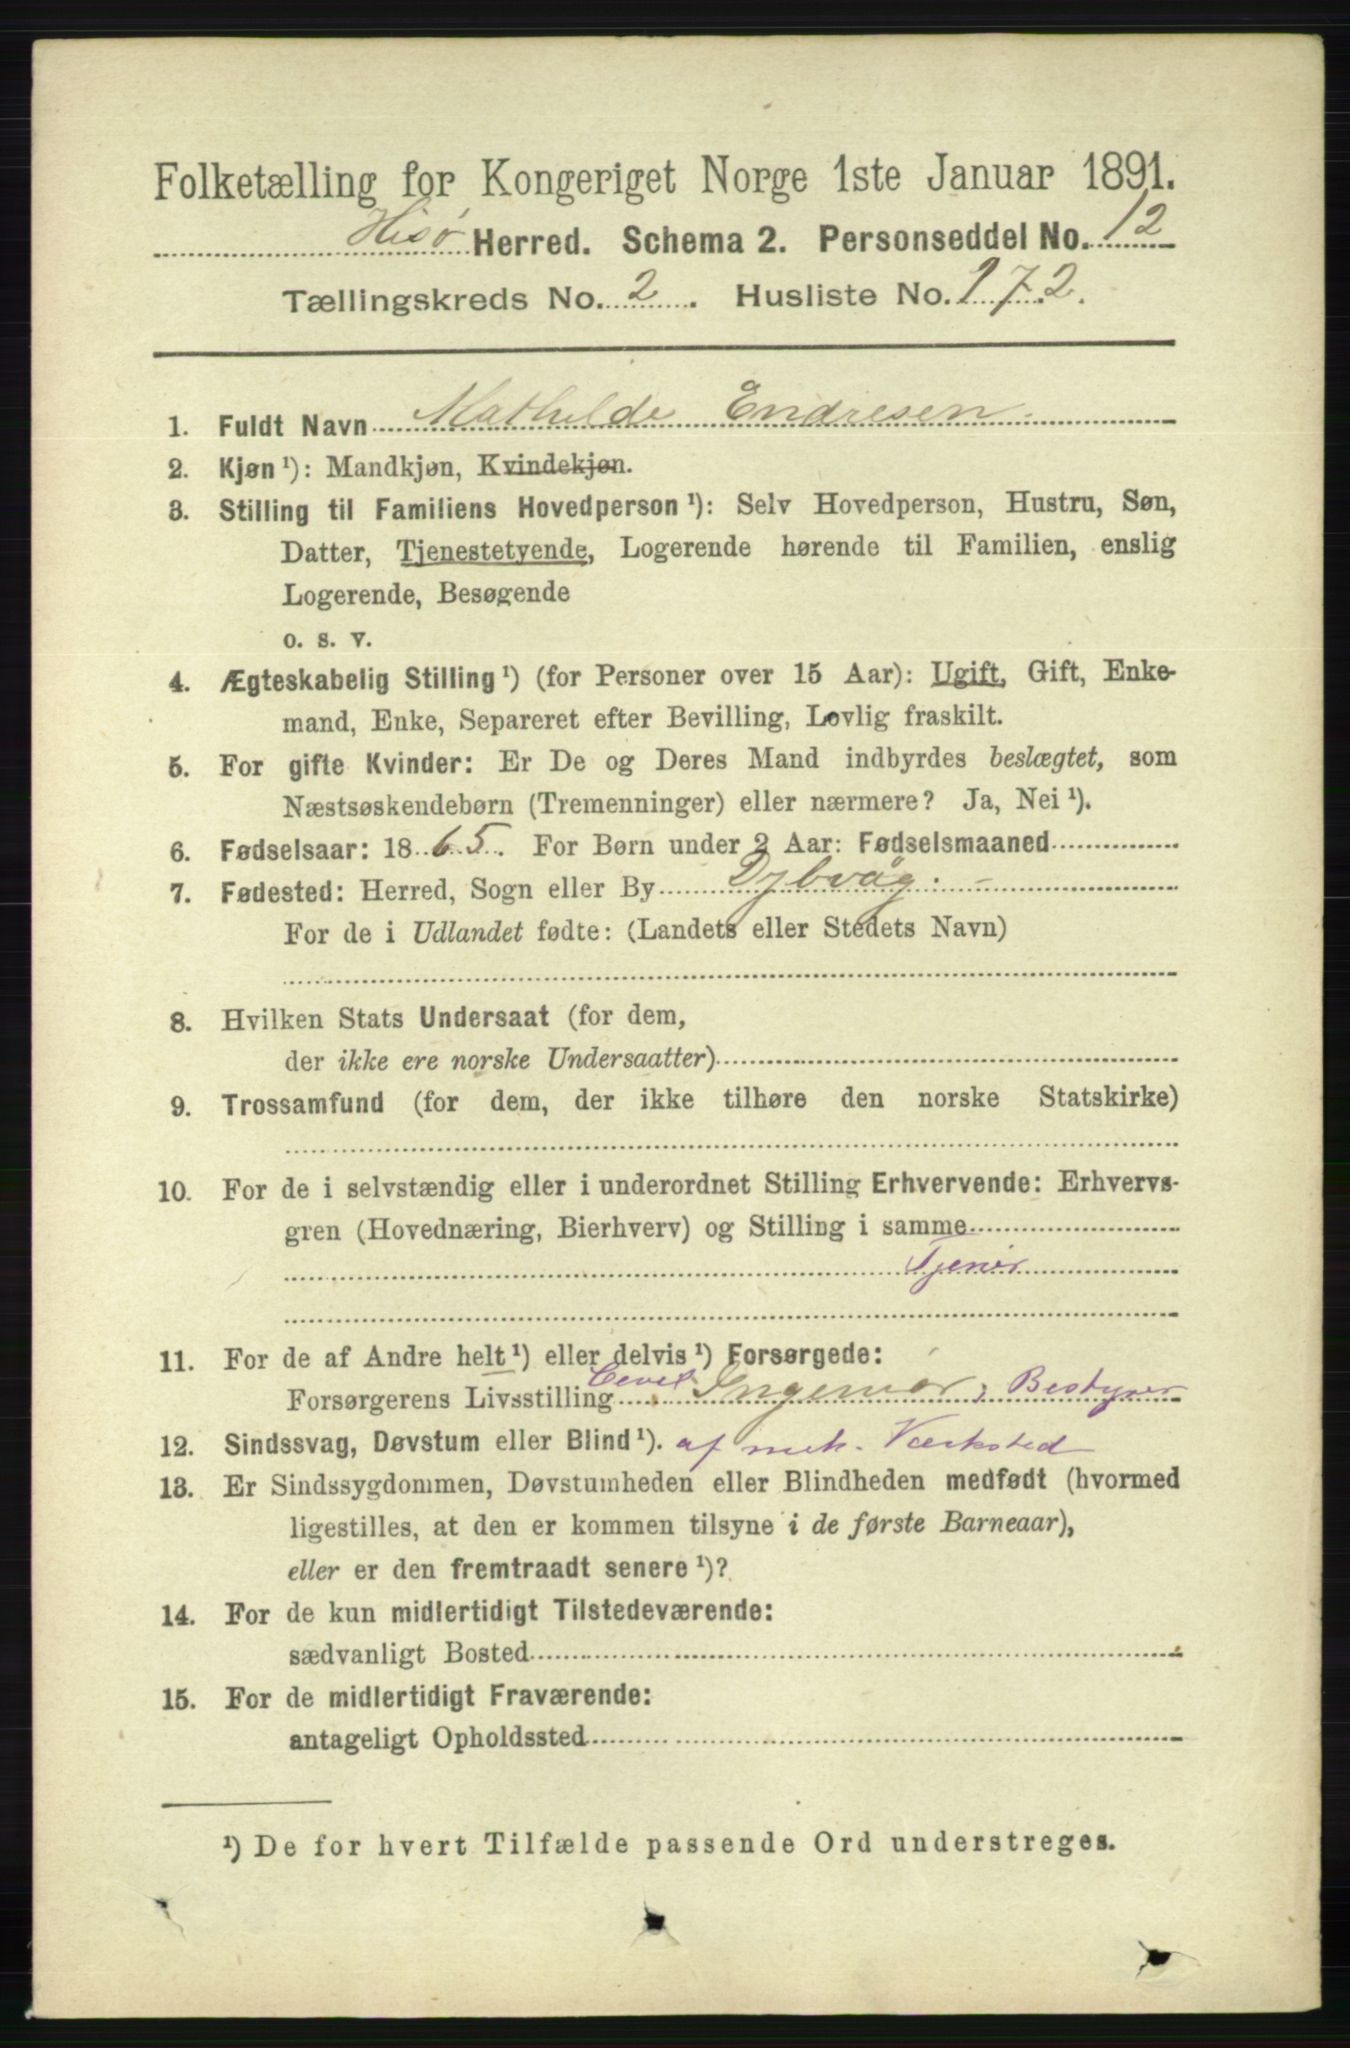 Folketælling for Kongeriget Norge 1ste Januar 1891.
Hisø Herred. Schema 2. Personseddel No. 12
Tællingskreds No. 2. Husliste No. 172.
1. Fuldt Navn Mathilde Endresen
2. Kjøn ¹): Mandkjøn, Kvindekjøn.
3. Stilling til Familiens Hovedperson ¹): Selv Hovedperson, Hustru, Søn,
Datter, Tjenestetyende, Logerende hørende til Familien, enslig
Logerende, Besøgende
o. s. v.
4. Ægteskabelig Stilling ¹) (for Personer over 15 Aar): Ugift, Gift, Enke-
mand, Enke, Separeret efter Bevilling, Lovlig fraskilt.
5. For gifte Kvinder: Er De og Deres Mand indbyrdes beslægtet, som
Næstsøskendebørn (Tremenninger) eller nærmere? Ja, Nei ¹).
6. Fødselsaar: 1865. For Børn under 2 Aar: Fødselsmaaned
7. Fødested: Herred, Sogn eller By Dybvåg.
For de i Udlandet fødte: (Landets eller Stedets Navn)
8. Hvilken Stats Undersaat (for dem,
der ikke ere norske Undersaatter)
9. Trossamfund (for dem, der ikke tilhøre den norske Statskirke)
10. For de i selvstændig eller i underordnet Stilling Erhvervende: Erhvervs-
gren (Hovednæring, Bierhverv) og Stilling i samme
Tjener
11. For de af Andre helt ¹) eller delvis ¹) Forsørgede:
Forsørgerens Livsstilling Civil Ingeniør; Bestyrer
12. Sindssvag, Døvstum eller Blind ¹). af mek. Værksted
13. Er Sindssygdommen, Døvstumheden eller Blindheden medfødt (hvormed
ligestilles, at den er kommen tilsyne i de første Barneaar),
eller er den fremtraadt senere ¹)?
14. For de kun midlertidigt Tilstedeværende:
sædvanligt Bosted
15. For de midlertidigt Fraværende:
antageligt Opholdssted
¹) De for hvert Tilfælde passende Ord understreges.